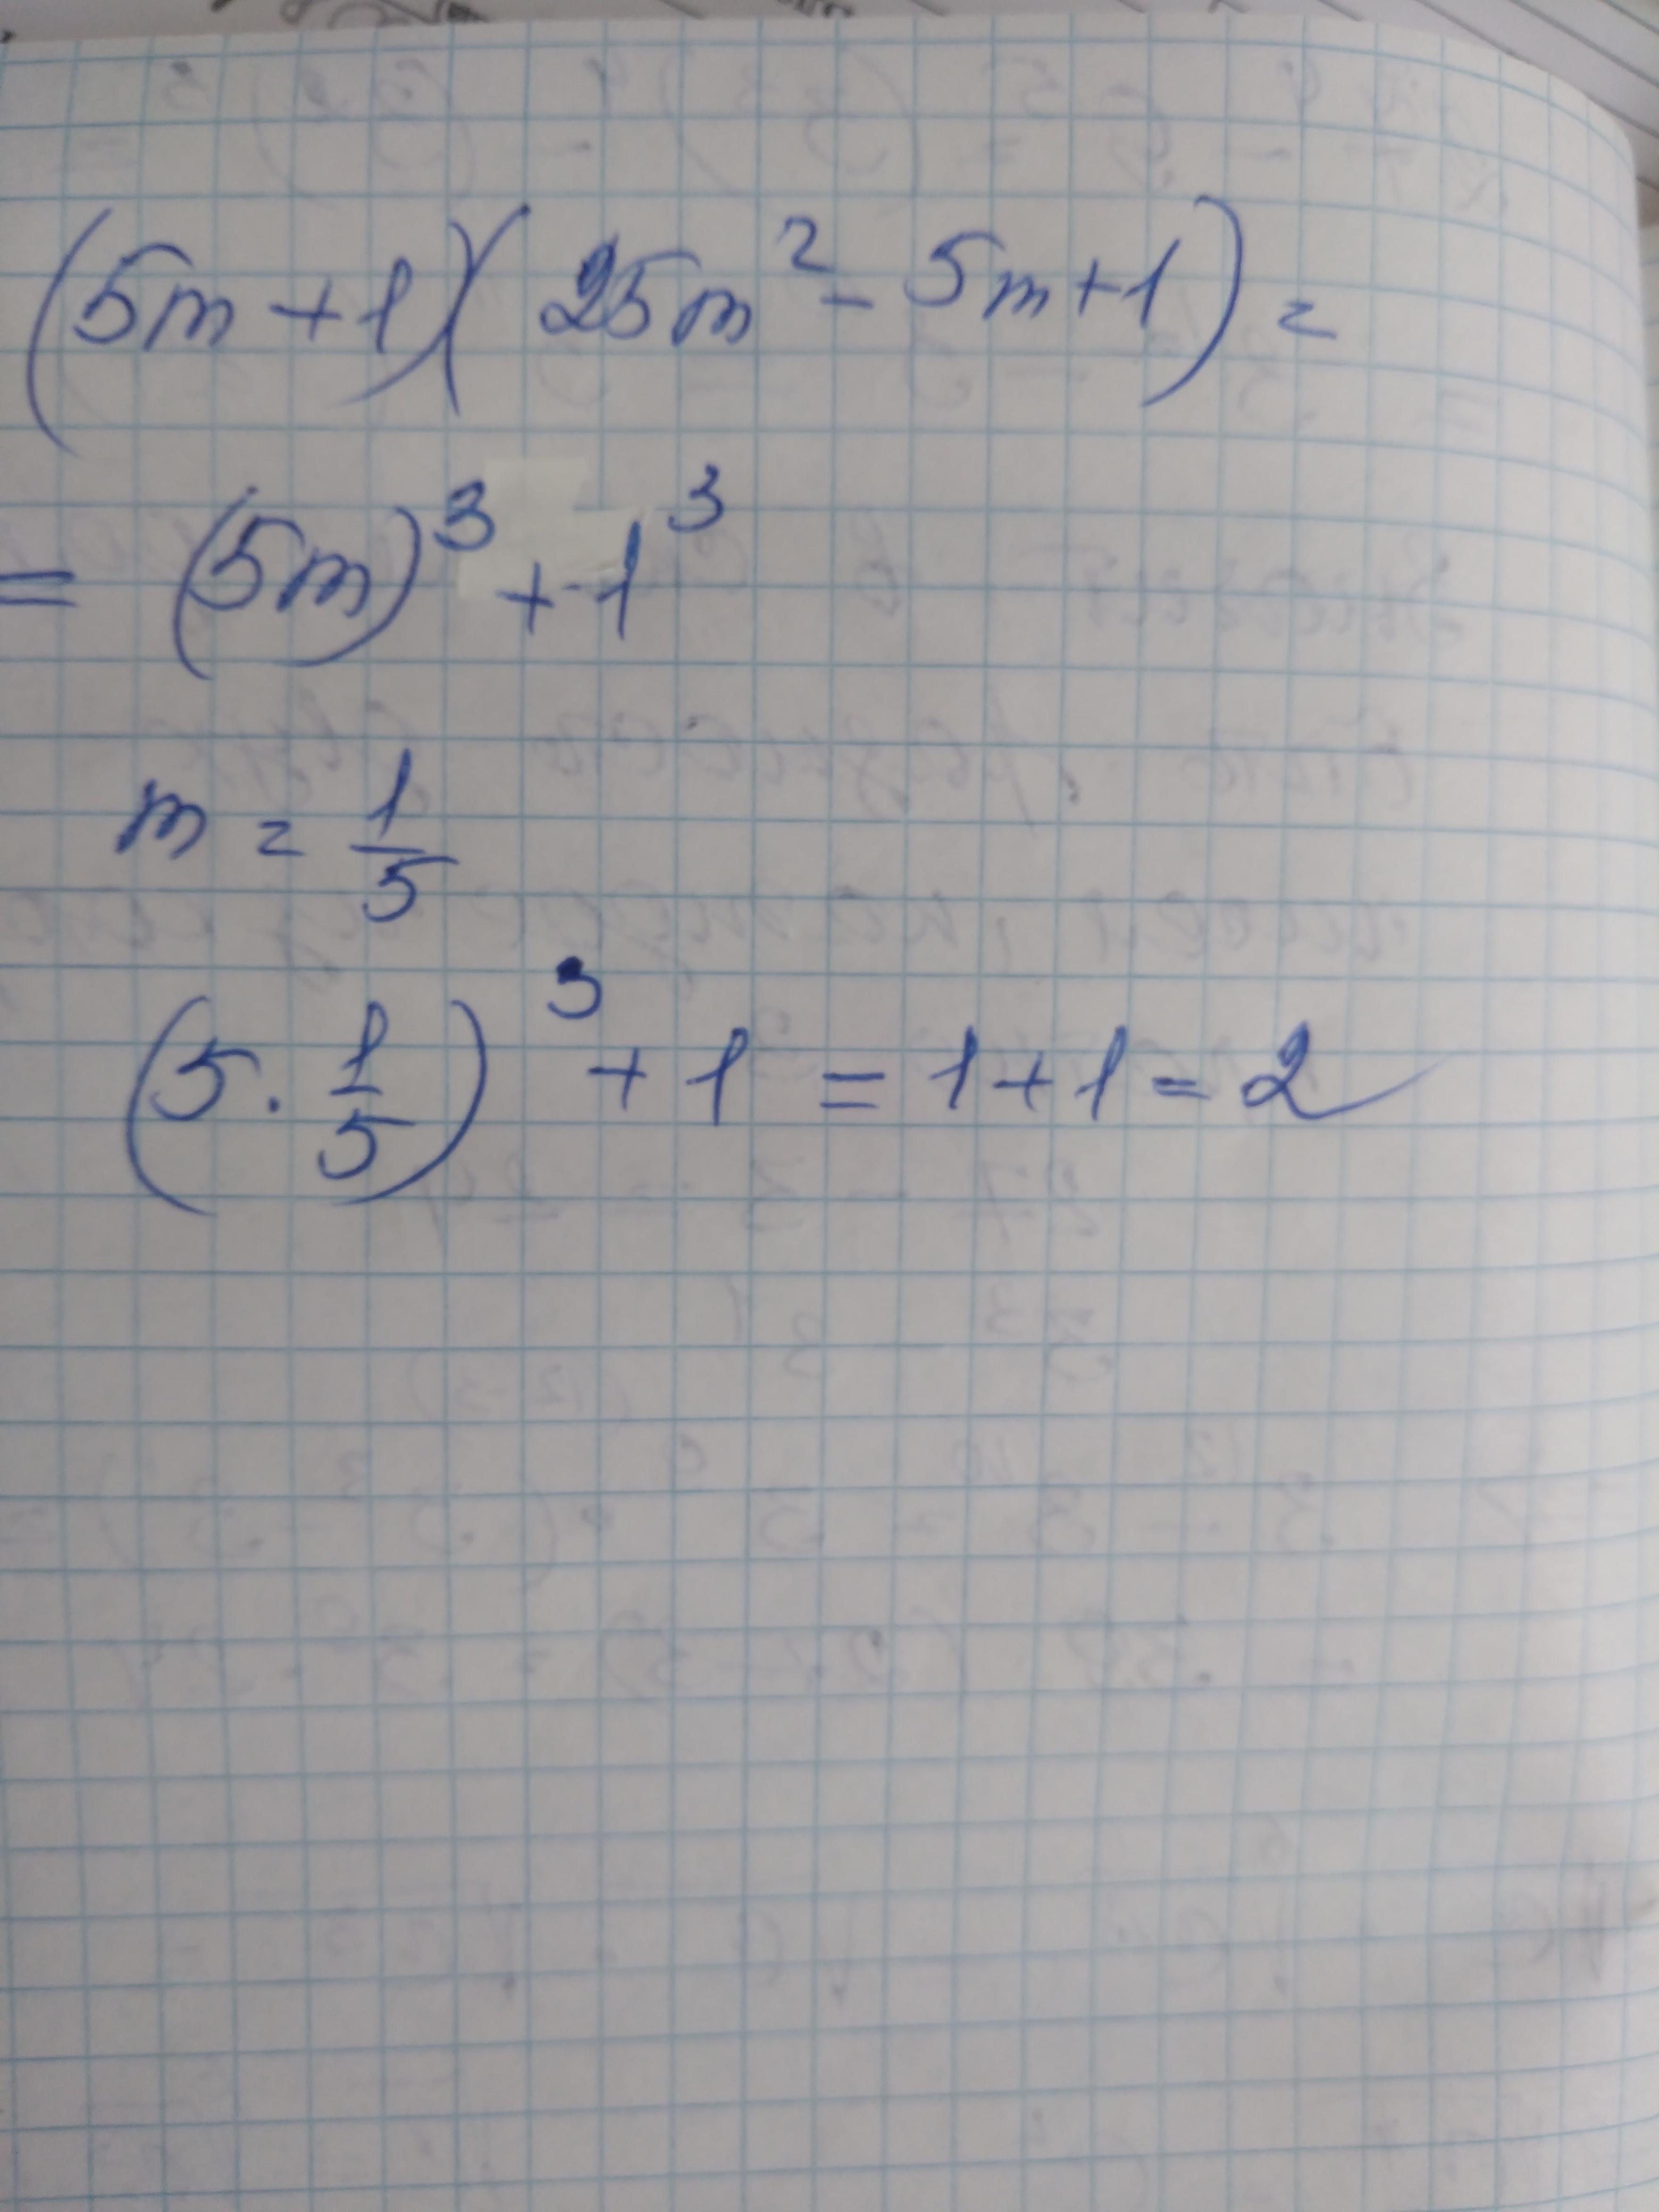 (5m+1)(25m²-5m+1)=
= (5m)³+1³
m = 1/5
(5·1/5)³+1=1+1=2